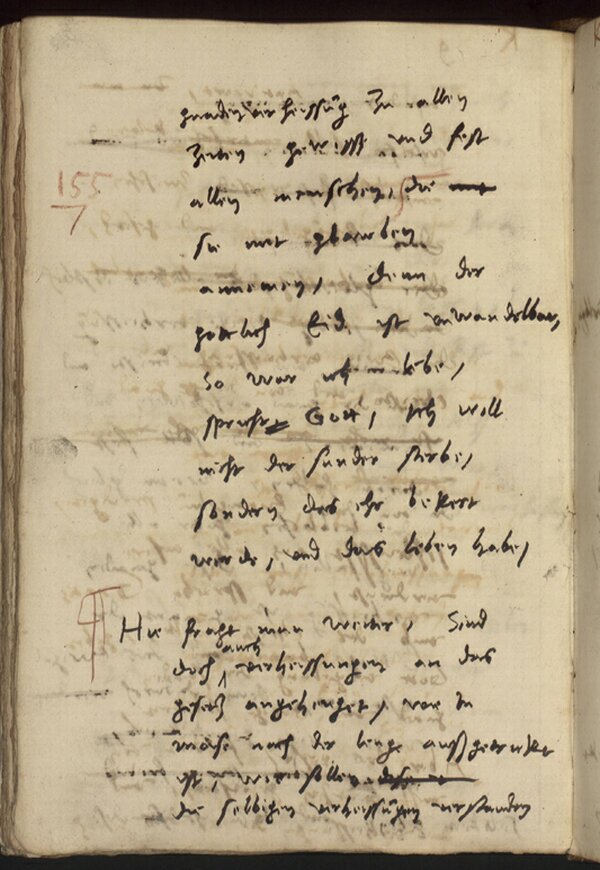 gnaden verheissung zu allen
zeiten gewiss und fest
155 allen menschen, die
7
sie mit glawben
annemen, denn der
gottlich Eid ist unwandelbar,
so war ich lebe,
spricht Gott, ich woll
nicht der sunder sterbe,
sondern das ehr bekert
werde, und das leben habe,
Hie fragt man weiter, Sind
auch
doch verheissungen an das
gesetz angehenget, wie in
Mose nach der lenge aussgetruckt
ist, wie sollen
die selbigen verheissungen verstanden